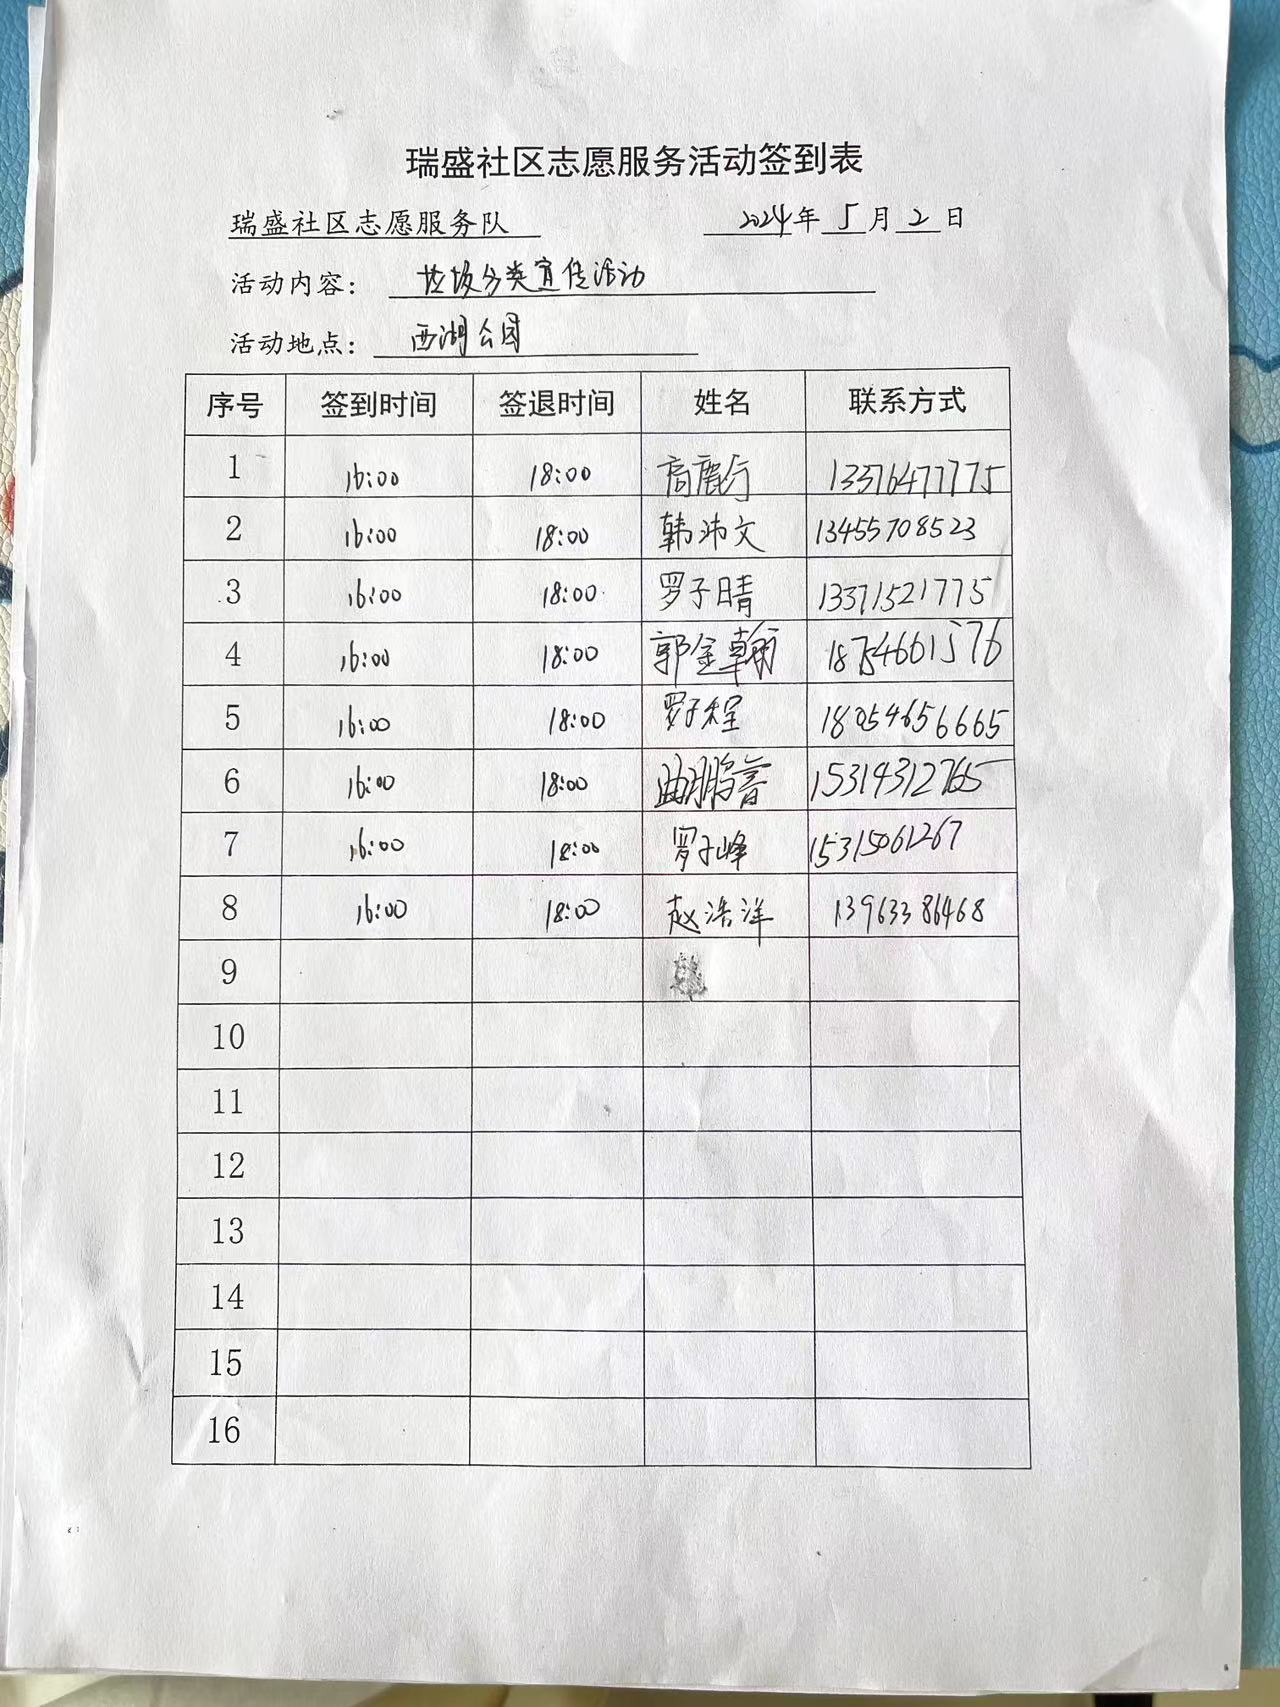 瑞盛社区志愿服务活动签到表
瑞盛社区志愿服务队 2024年5月2日
活动内容：垃圾分类宣传活动
活动地点：西湖公园
序号 签到时间 签退时间 姓名 联系方式
1 16:00 18:00 高鹿行 13376477775
2 16:00 18:00 韩沛文 13455708523
3 16:00 18:00 罗子晴 13371521775
4 16:00 18:00 郭金翰 18754661576
5 16:00 18:00 罗子程 18054656665
6 16:00 18:00 曲鹏 15314312765
7 16:00 18:00 罗子峰 15315061267
8 16:00 18:00 赵浩洋 13963386468
9
10
11
12
13
14
15
16